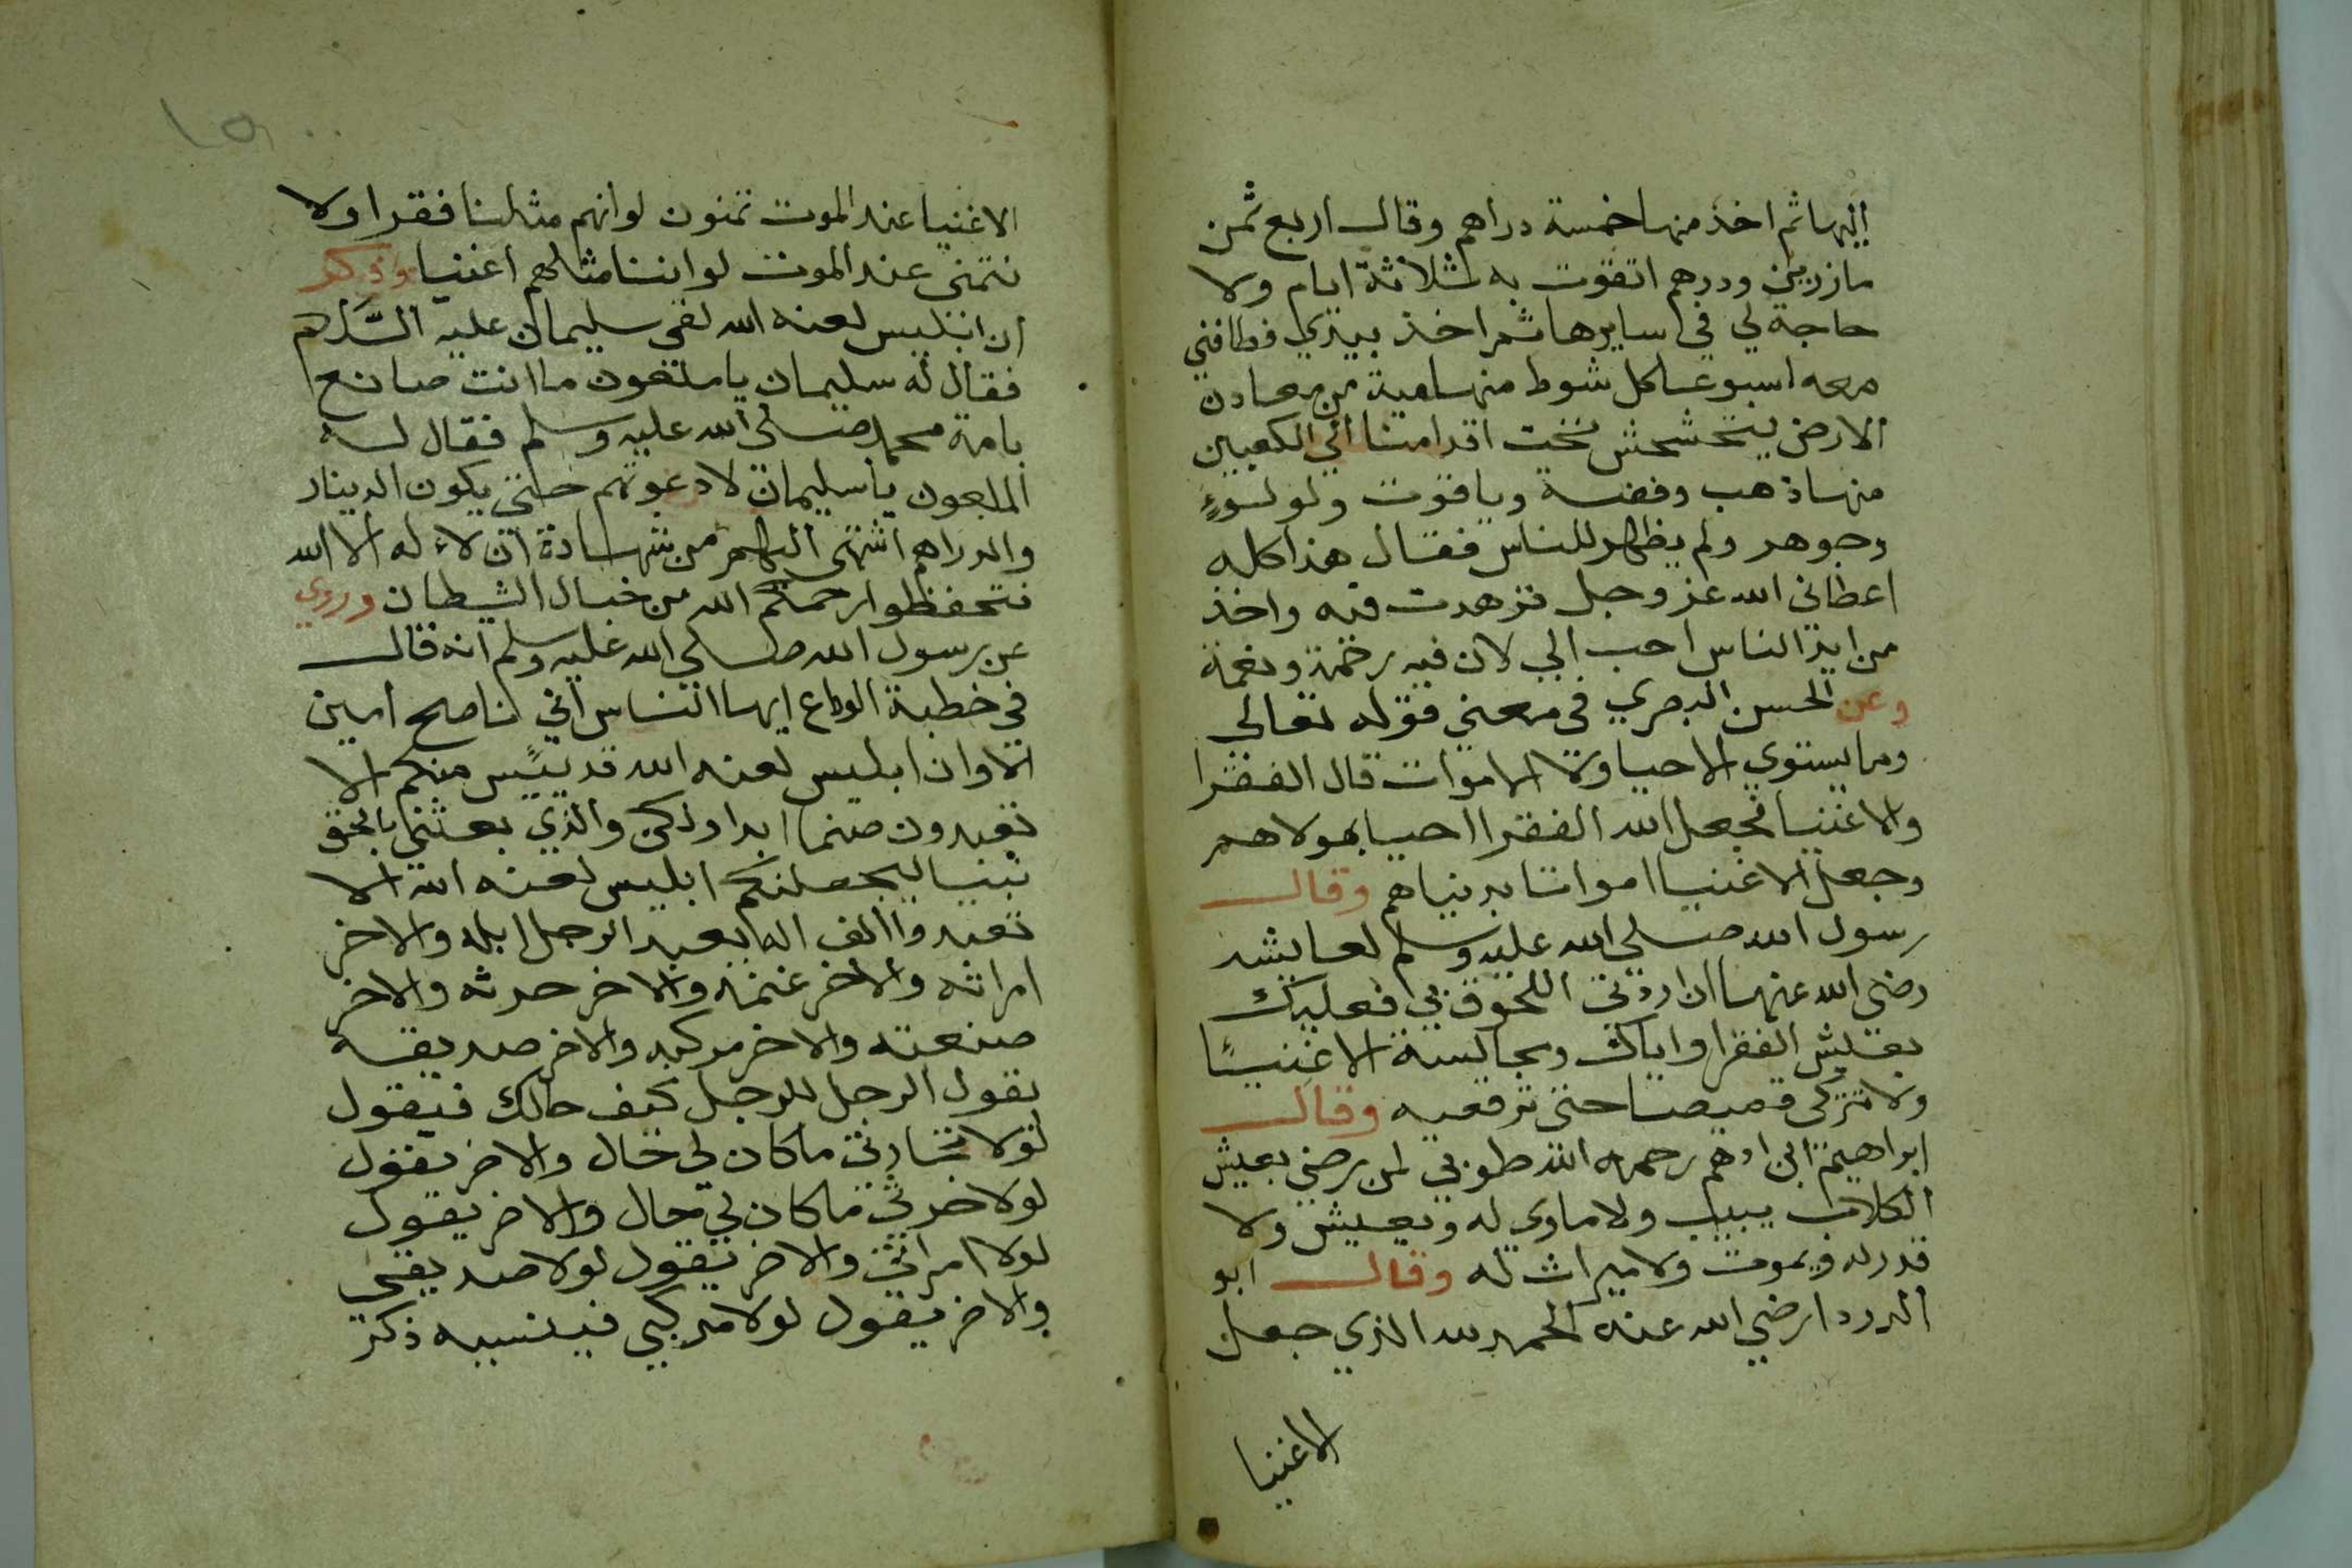 اليها ثم اخذ منها خمسة دراهم وقال اربع ثمن
مازرين ودرهم اتقوت به ثلاثة ايام ولا
حاجة لي في سايرها ثم اخذ بيدي فطافني
معه اسبوعا كل شوط منها مية من معادن
الارض يتخشخش تحت اقدامنا الي الكعبين
منها ذهب وفضة وياقوت ولولوءٍ
وجوهر ولم يظهر للناس فقال هذا كله
اعطاني الله عز وجل فزهدت فيه واخذ
من ايد الناس احب الي لان فيه رحمة ونعمة
وعن الحسن البصري في معني قوله تعالي
وما يستوي الاحيا ولا الاموات قال الفقرا
والاغنيا فجعل الله الفقرا احيا بمولاهم
وجعل الاغنيا امواتا بدنياهم وقال
رسول الله صلي الله عليه وسلم لعايشه
رضي الله عنها ان اردتي اللحوق بي فعليك
بعيش الفقرا واياك ومجالسة الاغنيًا
ولا تنزعي قميصا حتي ترقعيه وقال
ابراهيم ابن ادهم رحمه الله طوبي لمن رضي بعيش
الكلاب يبيت ولا ماوي له ويعيش ولا
قدر له ويموت ولا ميراث له وقال ابو
الدردا رضي الله عنه الحمد لله الذي جعل
الاغنيا
١٥
الاغنيا عند الموت تمنون لوانهم مثلنا فقرا ولا
نتمني عند الموت لو اننا مثلهم اغنيا وذكر
ان ابليس لعنه الله لقي سليمان عليه السَّلام
فقال له سليمان يا ملعون ما انت صانع
بامة محمد صلي الله عليه وسلم فقال له
الملعون يا سليمان لادعونهم حتي يكون الدينار
والدراهم اشهي اليهم من شهادة ان لا اله الا الله
فتحفظوا رحمكم الله من خبال الشيطان وروي
عن رسول الله صلي الله عليه وسلم انه قال
في خطبة الوداع ايها الناس اني لناصح امين
الا وان ابليس لعنه الله قد يئيس منكم الا
تعبدون صنما ابدا ولكن والذي بعثني بالحق
نبيا ليجعلنكم ابليس لعنه الله الا
تعبدوا الف اله يعبد الرجل ابله والاخر
امراته والاخر غنمه والاخر حرثه والاخر
صنعته والاخر مركبه والاخر صديقه
يقول الرجل للرجل كيف حالك فيقول
لولا تجارتي ما كان لي حال والاخر يقول
لولا حرثي ما كان لي حال والاخر يقول
لولا امراتي والاخر يقول لولا صديقي
والاخر يقول لولا مركبي فينسيه ذكر